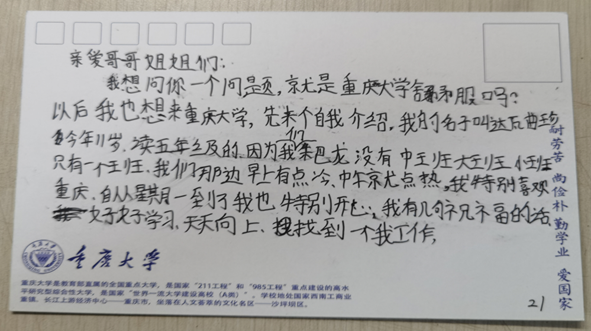 亲爱哥哥姐姐们:
我想问你一个问题,京尤是重庆大学舒服吗?
以后我也想来重庆大学,先来个自我介绍,我的名子叫达瓦曲珍
今年11岁,读五年级的,因为我们集巴龙没有中班大班小班
只有一个班,我们那边早上有点冷,中午尤点热,我特别喜欢
重庆,自从星期一到了我也特别开心,我有几句祝福的话,
好好学习,天天向上,找到一个我工作,
耐劳苦 尚俭朴 勤学业 爱国家
重庆大学
重庆大学是教育部直属的全国重点大学,是国家“211工程”和“985工程”重点建设的高水
平研究型综合性大学,是国家“世界一流大学建设高校(A类)”,学校地处国家西南工商业
重镇、长江上游经济中心——重庆市,坐落在人文荟萃的文化名区——沙坪坝区。
21